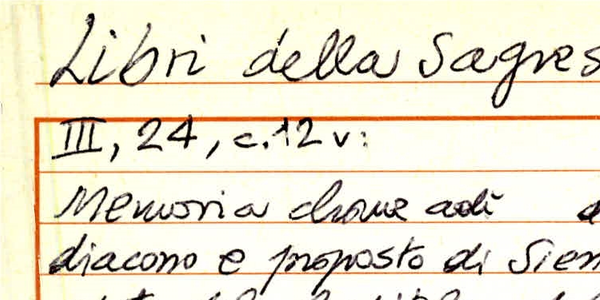 Libri della Sagres
III, 24, c.12v:
Memoria chome adì
diacono e proposto di Sien